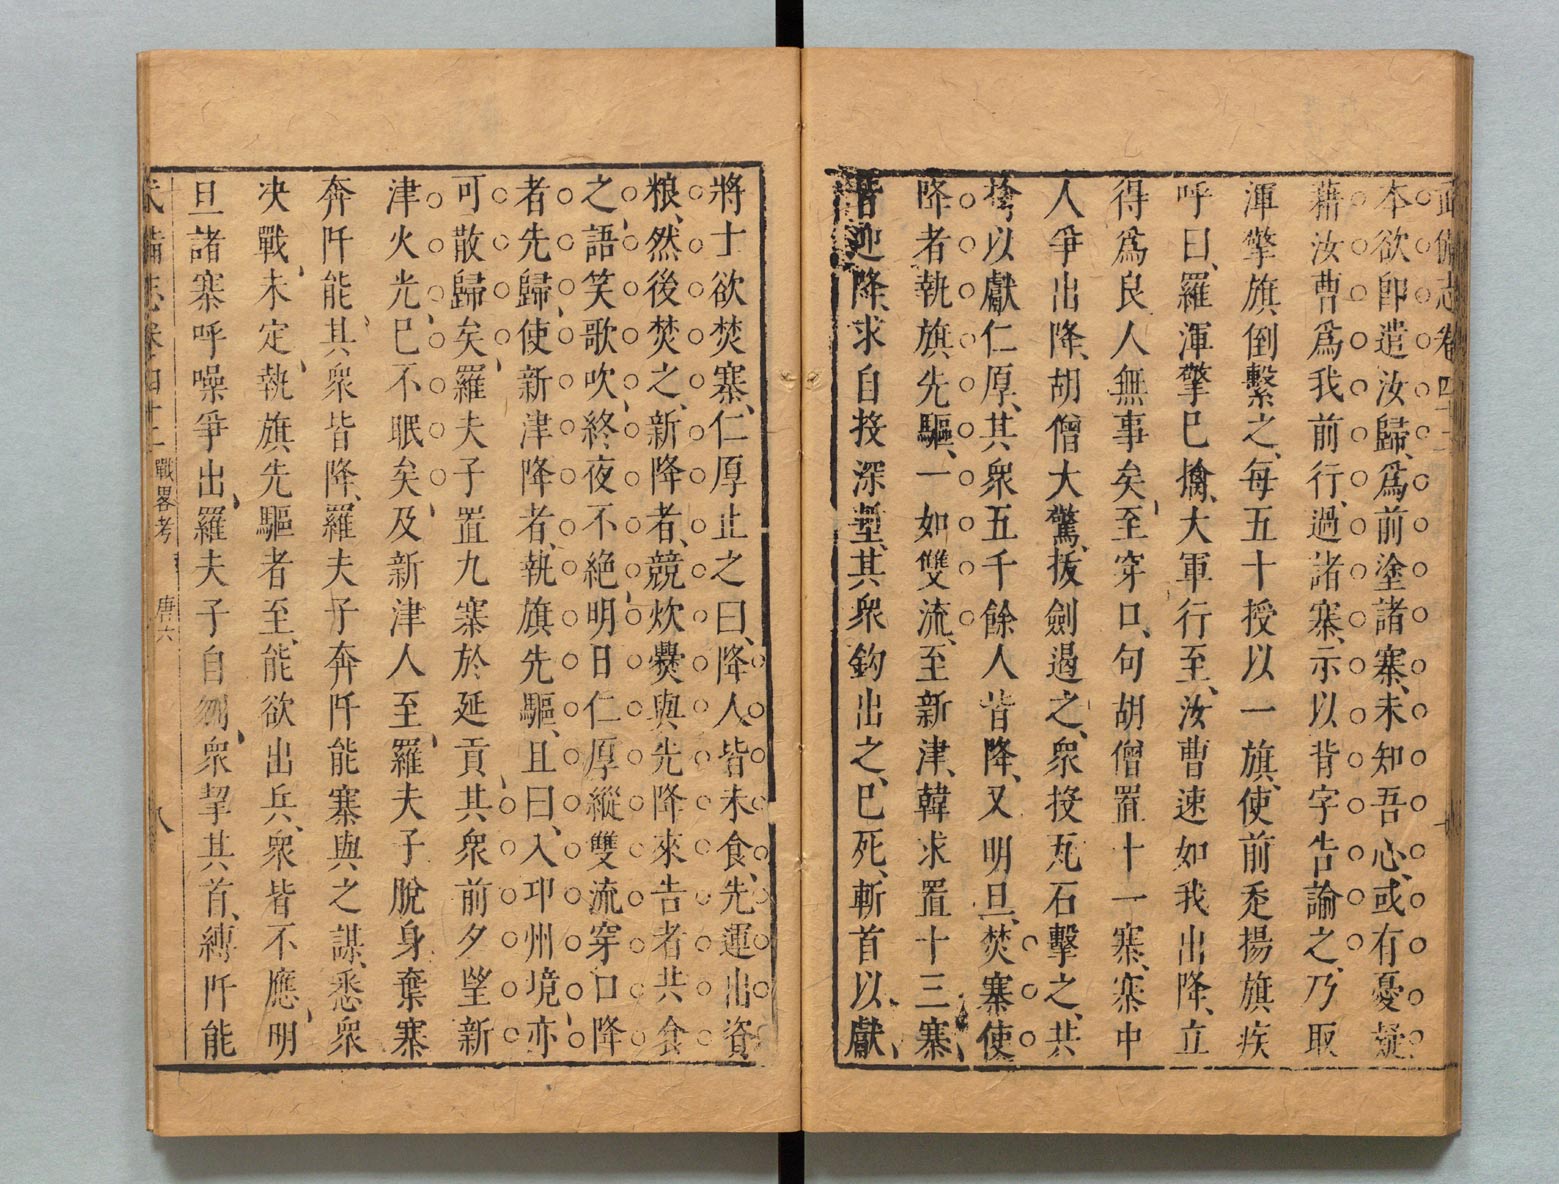 武備志卷四十二
本欲即遣汝歸、爲前塗諸寨、未知吾心、或有憂疑、
藉汝曹爲我前行、過諸寨、示以背字告諭之、乃取
渾擎旗倒繫之、每五十授以一旗、使前走揚旗疾
呼曰、羅渾擎巳擒、大軍行至、汝曹速如我出降、立
得爲良人無事矣、至穿口、句胡僧置十一寨、寨中
人爭出降、胡僧大驚、拔劍遏之、衆投瓦石擊之、共
擒以獻仁厚、其衆五千餘人皆降、又明旦、焚寨使
降者執旗先驅、一如雙流、至新津、韓求置十三寨、
皆迎降、求自投深塹、其衆鈎出之、巳死、斬首以獻、
將士欲焚寨、仁厚止之曰、降人皆未食、先運出資
粮、然後焚之、新降者、競炊爨與先降來告者共食
之、語笑歌吹、終夜不絶、明日仁厚縱雙流穿口降
者先歸、使新津降者、執旗先驅、且曰、入邛州境、亦
可散歸矣、羅夫子置九寨於延貢、其衆前夕望新
津火光、巳不眠矣、及新津人至、羅夫子脫身棄寨
奔阡能、其衆皆降、羅夫子奔阡能寨與之謀、悉衆
决戰、未定、執旗先驅者至、能欲出兵、衆皆不應、明
旦諸寨呼噪爭出、羅夫子自刎、衆挈其首、縛阡能
武備志卷四十二 戰畧考 唐六 八